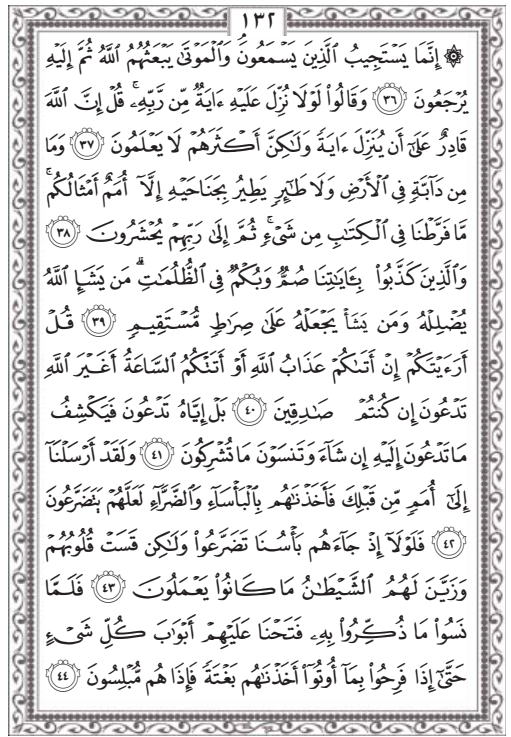 ١٣٢
۞ إِنَّمَا يَسْتَجِيبُ ٱلَّذِينَ يَسْمَعُونَ وَٱلْمَوْتَىٰ يَبْعَثُهُمُ ٱللَّهُ ثُمَّ إِلَيْهِ
يُرْجَعُونَ ٣٦ وَقَالُوا۟ لَوْلَا نُزِّلَ عَلَيْهِ ءَايَةٌ مِّن رَّبِّهِۦ ۚ قُلْ إِنَّ ٱللَّهَ
قَادِرٌ عَلَىٰٓ أَن يُنَزِّلَ ءَايَةً وَلَٰكِنَّ أَكْثَرَهُمْ لَا يَعْلَمُونَ ٣٧ وَمَا
مِن دَآبَّةٍ فِى ٱلْأَرْضِ وَلَا طَٰٓئِرٍ يَطِيرُ بِجَنَاحَيْهِ إِلَّآ أُمَمٌ أَمْثَالُكُم ۚ
مَّا فَرَّطْنَا فِى ٱلْكِتَٰبِ مِن شَىْءٍ ۚ ثُمَّ إِلَىٰ رَبِّهِمْ يُحْشَرُونَ ٣٨
وَٱلَّذِينَ كَذَّبُوا۟ بِـَٔايَٰتِنَا صُمٌّ وَبُكْمٌ فِى ٱلظُّلُمَٰتِ ۗ مَن يَشَإِ ٱللَّهُ
يُضْلِلْهُ وَمَن يَشَأْ يَجْعَلْهُ عَلَىٰ صِرَٰطٍ مُّسْتَقِيمٍ ٣٩ قُلْ
أَرَءَيْتَكُمْ إِنْ أَتَىٰكُمْ عَذَابُ ٱللَّهِ أَوْ أَتَتْكُمُ ٱلسَّاعَةُ أَغَيْرَ ٱللَّهِ
تَدْعُونَ إِن كُنتُمْ صَٰدِقِينَ ٤٠ بَلْ إِيَّاهُ تَدْعُونَ فَيَكْشِفُ
مَا تَدْعُونَ إِلَيْهِ إِن شَآءَ وَتَنسَوْنَ مَا تُشْرِكُونَ ٤١ وَلَقَدْ أَرْسَلْنَآ
إِلَىٰٓ أُمَمٍ مِّن قَبْلِكَ فَأَخَذْنَٰهُم بِٱلْبَأْسَآءِ وَٱلضَّرَّآءِ لَعَلَّهُمْ يَتَضَرَّعُونَ
٤٢ فَلَوْلَآ إِذْ جَآءَهُم بَأْسُنَا تَضَرَّعُوا۟ وَلَٰكِن قَسَتْ قُلُوبُهُمْ
وَزَيَّنَ لَهُمُ ٱلشَّيْطَٰنُ مَا كَانُوا۟ يَعْمَلُونَ ٤٣ فَلَمَّا
نَسُوا۟ مَا ذُكِّرُوا۟ بِهِۦ فَتَحْنَا عَلَيْهِمْ أَبْوَٰبَ كُلِّ شَىْءٍ
حَتَّىٰٓ إِذَا فَرِحُوا۟ بِمَآ أُوتُوٓا۟ أَخَذْنَٰهُم بَغْتَةً فَإِذَا هُم مُّبْلِسُونَ ٤٤